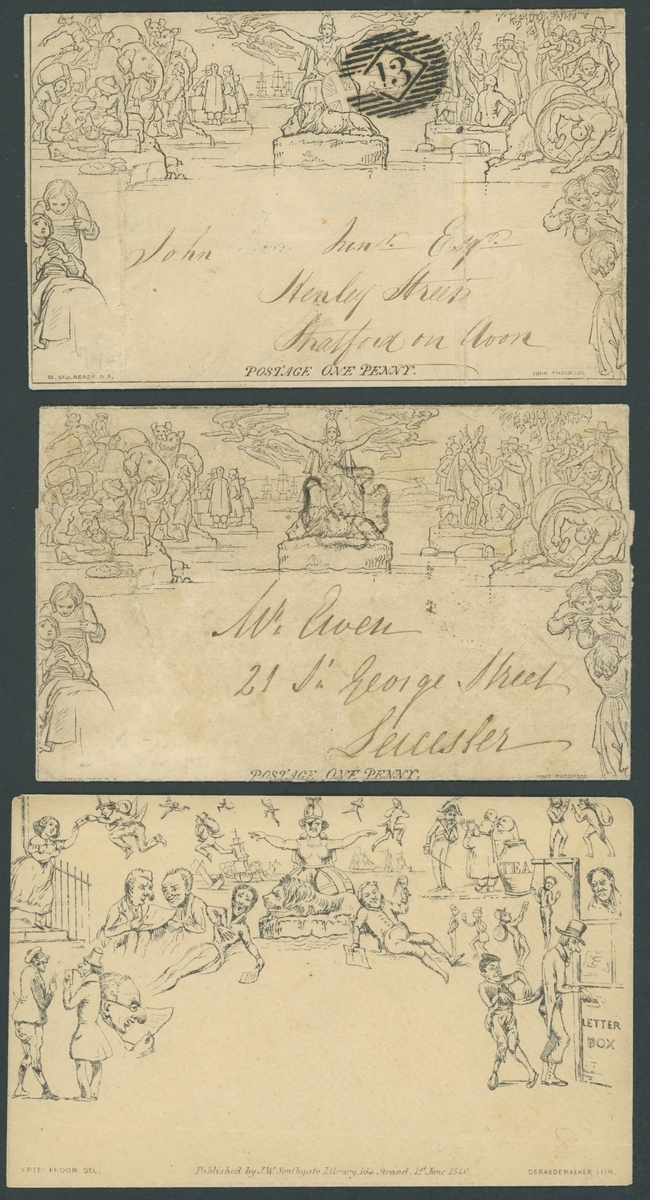 13
John Junr. Esqre.
Henley Street
Stratford on Avon
POSTAGE ONE PENNY.
W. MULREADY. R.A. JOHN THOMPSON
Mr. Ewen
21 St. George Street
Leicester
POSTAGE ONE PENNY.
JOHN THOMPSON
TEA
LETTER
BOX
FREDK. FROOM DEL. Published by J.W. Southgate Library, 164 Strand, 1st June 1840. DERAEDEMAEKER LITH.